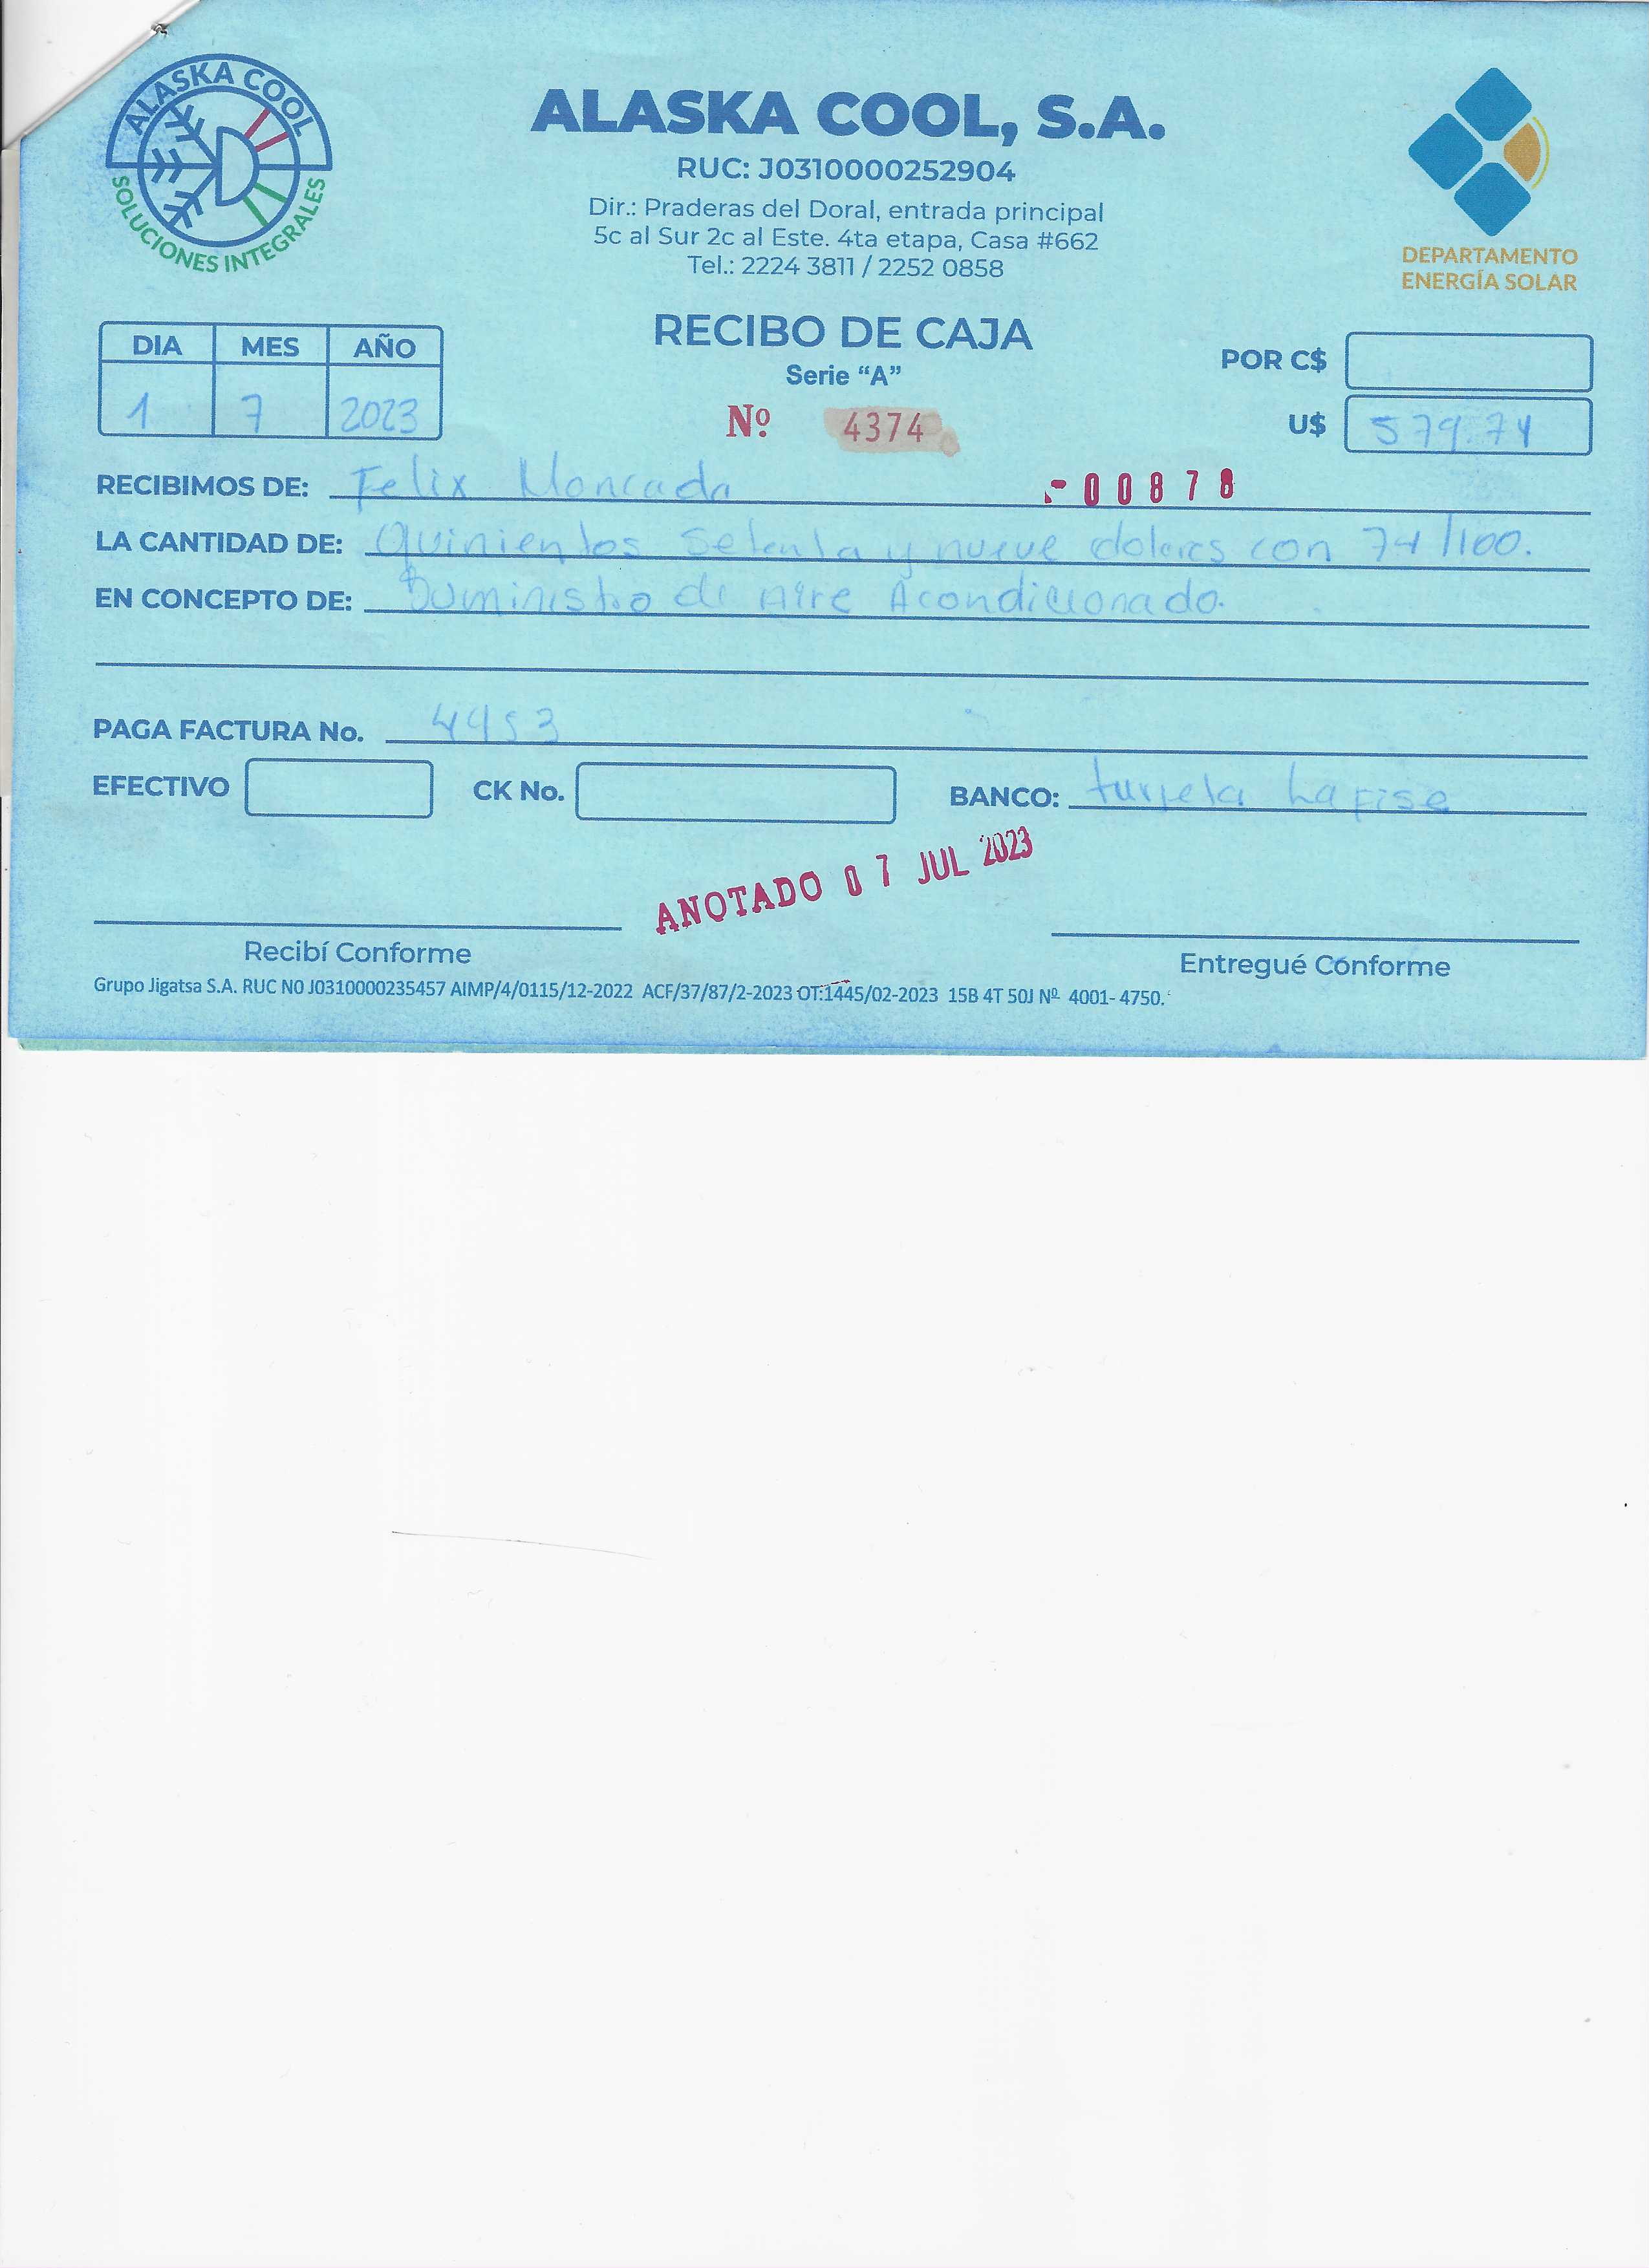 ALASKA COOL
SOLUCIONES INTEGRALES
ALASKA COOL, S.A.
RUC: J0310000252904
Dir.: Praderas del Doral, entrada principal
5c al Sur 2c al Este. 4ta etapa, Casa #662
Tel.: 2224 3811 / 2252 0858
DEPARTAMENTO
ENERGÍA SOLAR
DIA MES AÑO
1 7 2023
RECIBO DE CAJA
Serie “A”
Nº 4374
POR C$
U$ 579.74
RECIBIMOS DE: Felix Moncada
00878
LA CANTIDAD DE: Quinientos Setenta y nueve dolares con 74/100.
EN CONCEPTO DE: Suministro de Aire Acondicionado.
PAGA FACTURA No. 4453
EFECTIVO CK No. BANCO: tarjeta Lafise
ANOTADO 07 JUL 2023
Recibí Conforme
Entregué Conforme
Grupo Jigatsa S.A. RUC N0 J0310000235457 AIMP/4/0115/12-2022 ACF/37/87/2-2023 OT:1445/02-2023 15B 4T 50J Nº 4001- 4750.